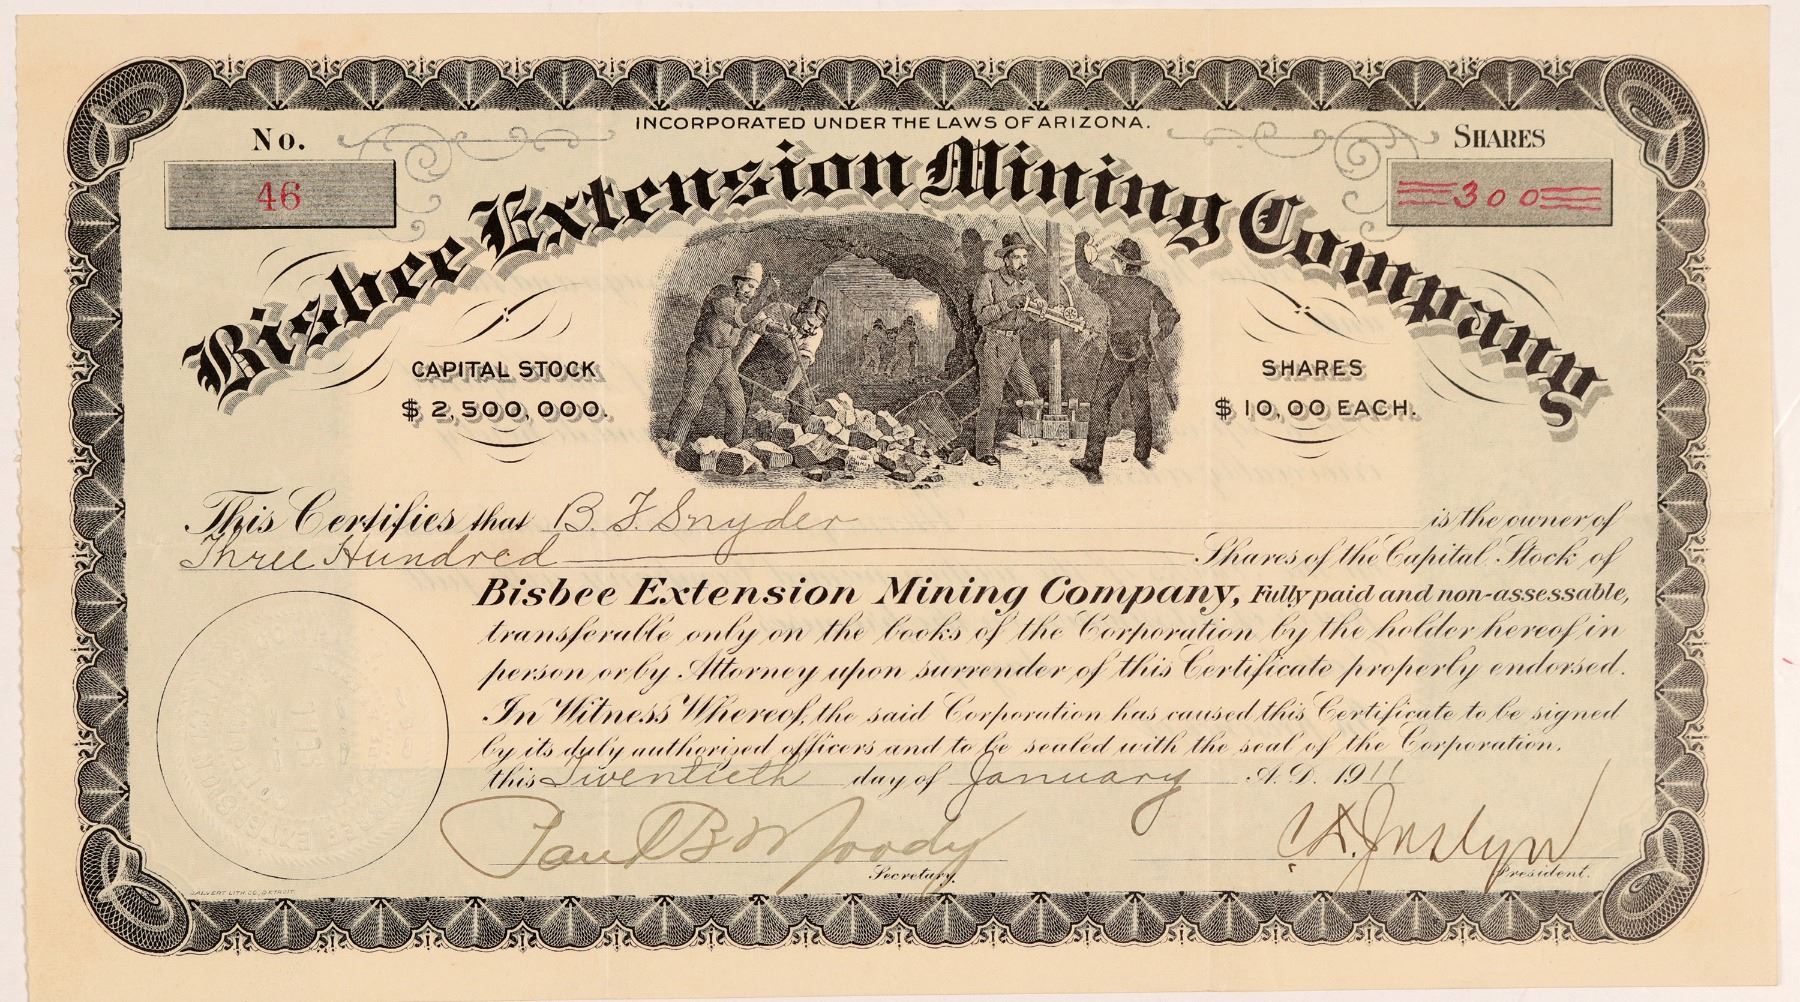 INCORPORATED UNDER THE LAWS OF ARIZONA.
No.
46
SHARES
300
Bisbee Extension Mining Company
CAPITAL STOCK
$ 2,500,000.
SHARES
$ 10,00 EACH.
This Certifies that B. F. Snyder is the owner of
Three Hundred Shares of the Capital Stock of
Bisbee Extension Mining Company, Fully paid and non-assessable,
transferable only on the books of the Corporation by the holder hereof in
person or by Attorney upon surrender of this Certificate properly endorsed.
In Witness Whereof, the said Corporation has caused this Certificate to be signed
by its duly authorized officers and to be sealed with the seal of the Corporation.
this Twentieth day of January A.D. 1911
Paul B Moody
Secretary.
President.
CALVERT LITH. CO., DETROIT.